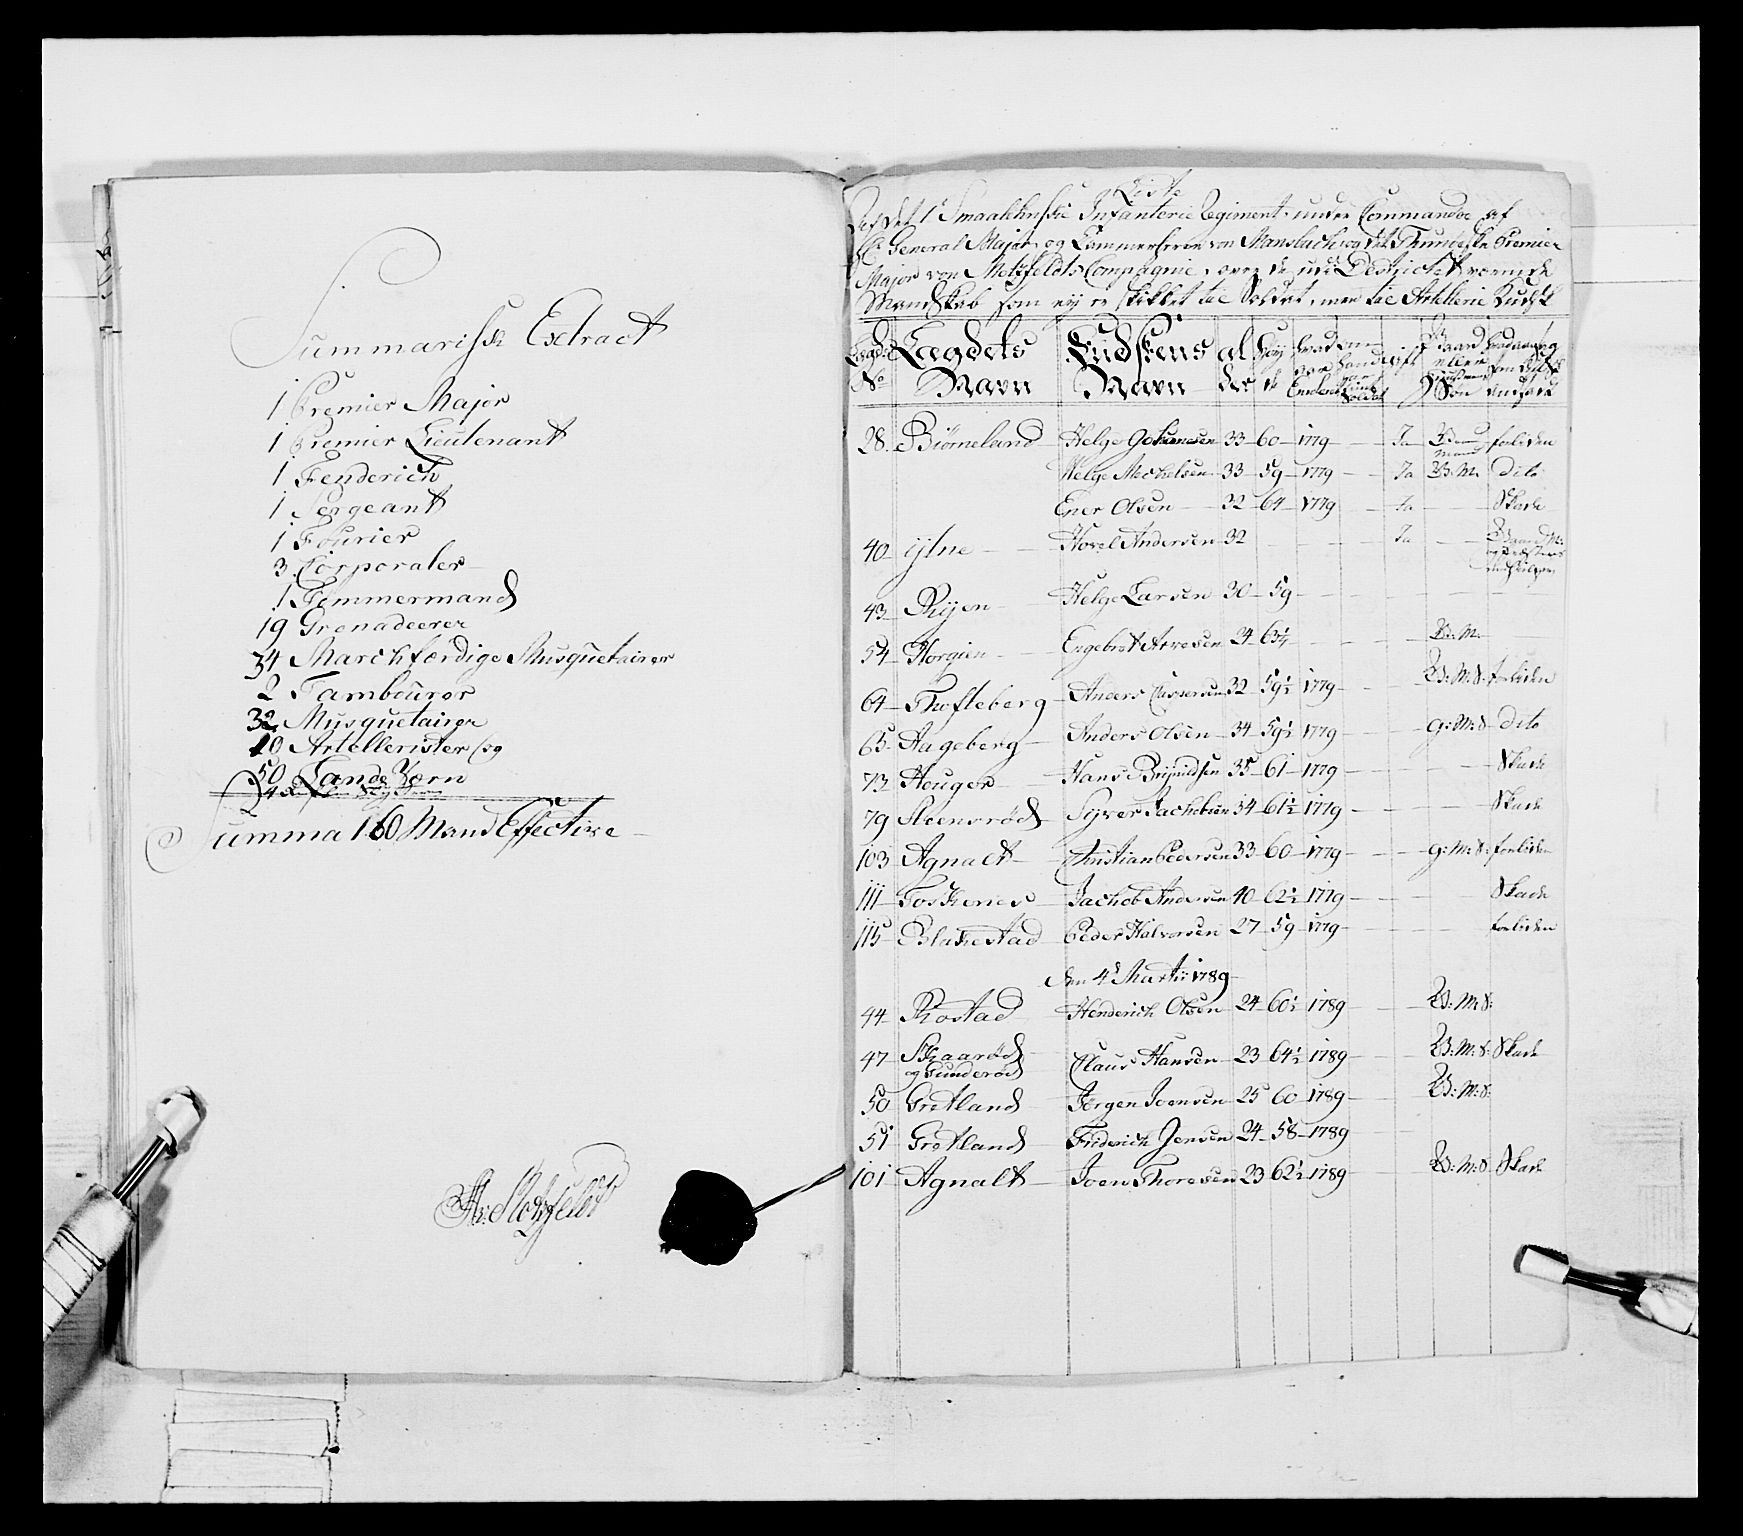 Summarisk Extract
1 Premier Major
1 Premier Lieutenant
1 Fenderich
1 Sergeant
1 Fourier
3 Corporaler
1 Temmermand
19 Grenadeerer
34 Marchfærdige Musquetairer
2 Tambourer
32 Musquetairer
10 Artellerister og
50 Lands Værn
Summa 160 Mand Effective
Liste
Ved det 1te Smaalehnske Infanterie Regiment under Commando af
Hr General Major og Kammerherre von Mansbach og det Thuneske Premier
Major von Motzfeldts Compagnie, over de udi Destrictet værende
Mandskab som ej er skikket til Soldat, men til Artellerie Kudsk
Lægd: No Lægdets Navn Kudskens Navn al der Høy de
28. Biørneland Helge Johannesen 33 60 1779 Ja Bonde Mand forliden
Helge Michelsen 33 59 1779 Ja B: M. dito
Ener Olsen 32 64 1779 Ja Skade
40 Ijlne Hovel Andersen 32 Ja
43 Rijen Helge Larsen 30 59
54 Horgien Engebret Arvesen 24 63 1/4 B: M.
64 Thofteberg Anders 32 59 1/2 1779 B: M: S. forliden
65 Aageberg Anders Olsen 34 59 1/2 1779 g: M: S dito
73 Heuger Hans Brijnildsen 35 61 1779 Skade
79 Steensrød Syver Jachobsen 34 61 1/2 1779 Skade
103 Agnalt Christian Pedersen 33 60 1779 g: M: S: forliden
111 Foskenes Jachob Andersen 40 62 1/2 1779 Skade
115 Blakestad Peder Halvorsen 27 59 1779 forliden
den 4de Martii 1789
44 Rostad Henderich Olsen 24 60 1/2 1789 B: M: S:
47 Skaarød og Gunderød Claus Hansen 23 64 1/2 1789 B: M: S: Skade
50 Gretland Jørgen Joensen 25 60 1789 B: M: S:
51 Gretland Friderich Jensen 24 58 1789
101 Agnalt Joen Thoresen 23 62 1/2 1789 B: M: S. Skade